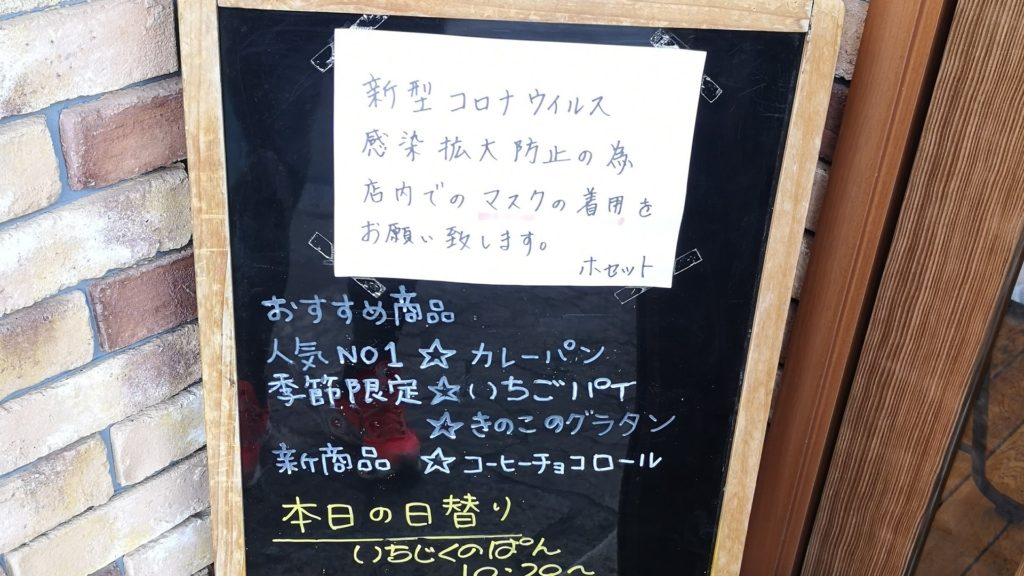 新型コロナウイルス
感染拡大防止の為
店内でのマスクの着用を
お願い致します。
ホセット
おすすめ商品
人気NO1 ☆ カレーパン
季節限定 ☆ いちごパイ
☆ きのこのグラタン
新商品 ☆ コーヒーチョコロール
本日の日替り
いちじくのぱん
10:20～